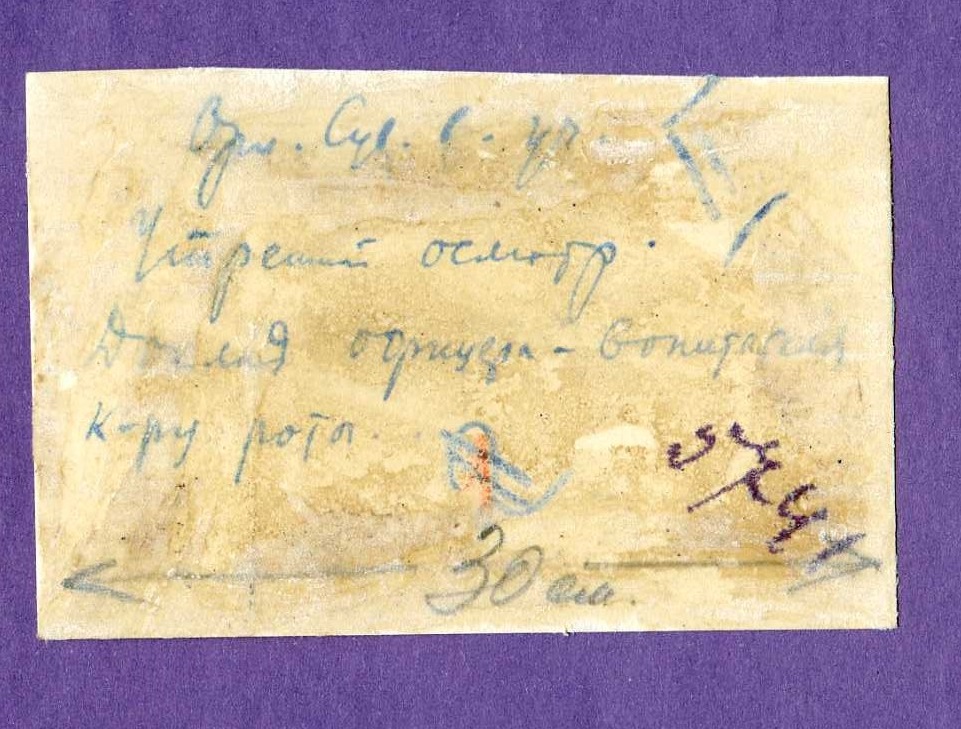 Орл. Сув. в. уч.
Утрений осмотр.
Доклад офицера-вопитателя
к-ру роты
30 см.